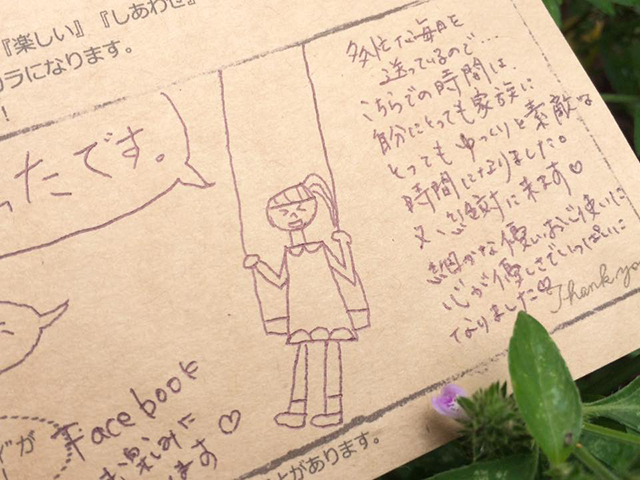 『楽しい』『しあわせ』
カラになります。
!
ったです。
多忙な毎日を
送っているので…
こちらでの時間は、
自分にとっても家族に
とってもゆっくりと素敵な
時間になりました。
又、絶対に来ます♡
細かな優しいお心使いに
心が優しさでいっぱいに
なりました♡
Thank yo
Facebook
お楽しみに
ます♡
ドが
があります。